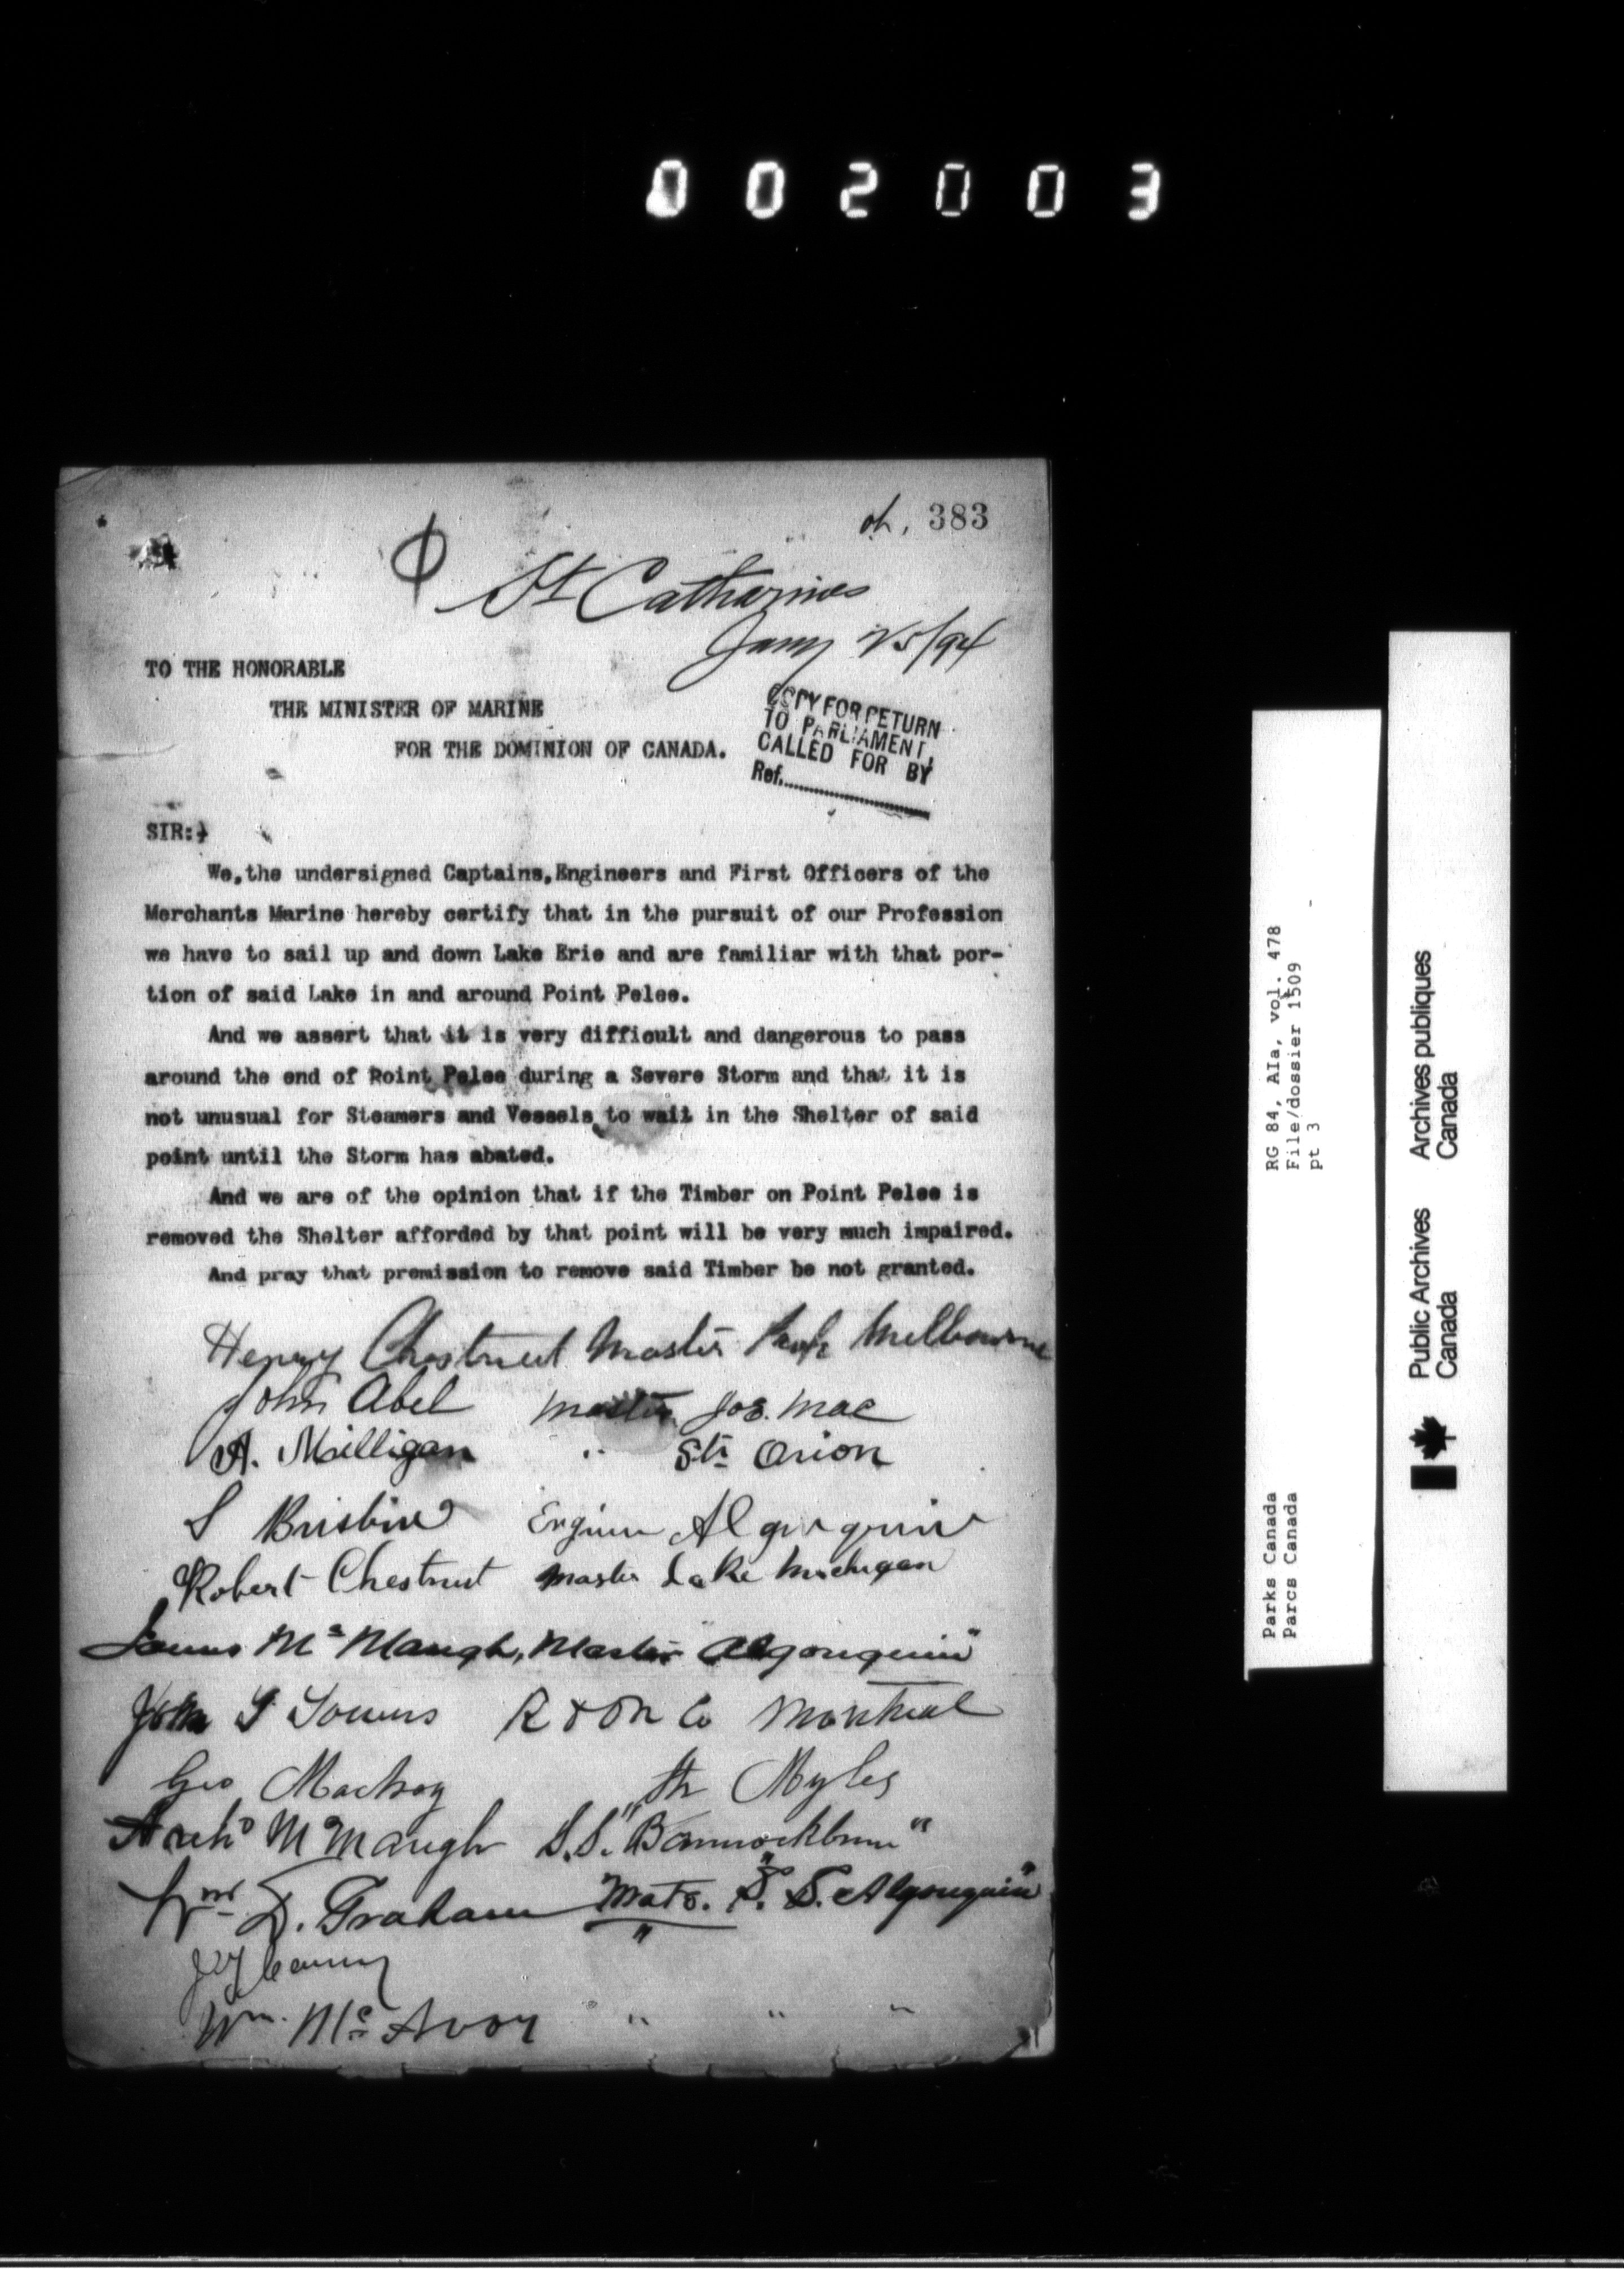 002003
ch. 383
St Catharines
Jany 25/94
TO THE HONORABLE
THE MINISTER OF MARINE
FOR THE DOMINION OF CANADA.
COPY FOR RETURN
TO PARLIAMENT,
CALLED FOR BY
Ref.
SIR:
We, the undersigned Captains, Engineers and First Officers of the
Merchants Marine hereby certify that in the pursuit of our Profession
we have to sail up and down Lake Erie and are familiar with that por-
tion of said Lake in and around Point Pelee.
And we assert that it is very difficult and dangerous to pass
around the end of Point Pelee during a Severe Storm and that it is
not unusual for Steamers and Vessels to wait in the Shelter of said
point until the Storm has abated.
And we are of the opinion that if the Timber on Point Pelee is
removed the Shelter afforded by that point will be very much impaired.
And pray that premission to remove said Timber be not granted.
Henry Chestnut Master Melbourne
John Abel Master Jos. Mac
A. Milligan " Str Orion
S Brisbin Engineer Algonquin
Robert Chestnut Master Lake Michigan
James McMaugh, Master "Algonquin"
John S R & O N Co Montreal
Geo Mackay Str Myles
Archd McMaugh S.S. "Bannockburn"
Wm D. Graham Mate. S. S. "Algonquin"
Wm. McAvoy " " "
RG 84, A1a, vol. 478
File/dossier 1509
pt 3
Parks Canada
Parcs Canada
Public Archives
Canada
Archives publiques
Canada